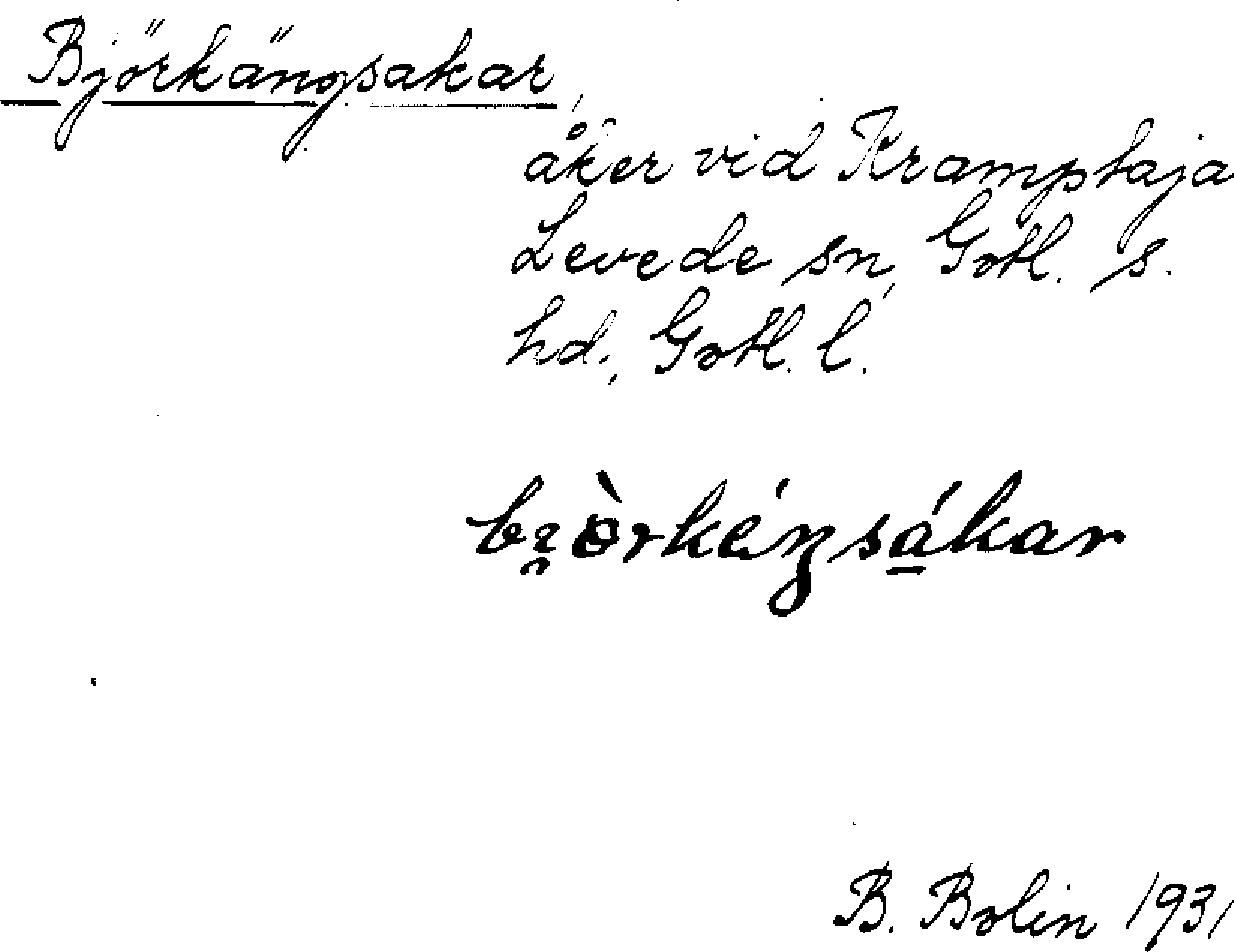 Björkängsakar,
åker vid Kramptaja
Levede sn, Gotl. s.
hd., Gotl. l.
bi̯òrkéŋsákar
B. Bolin 1931